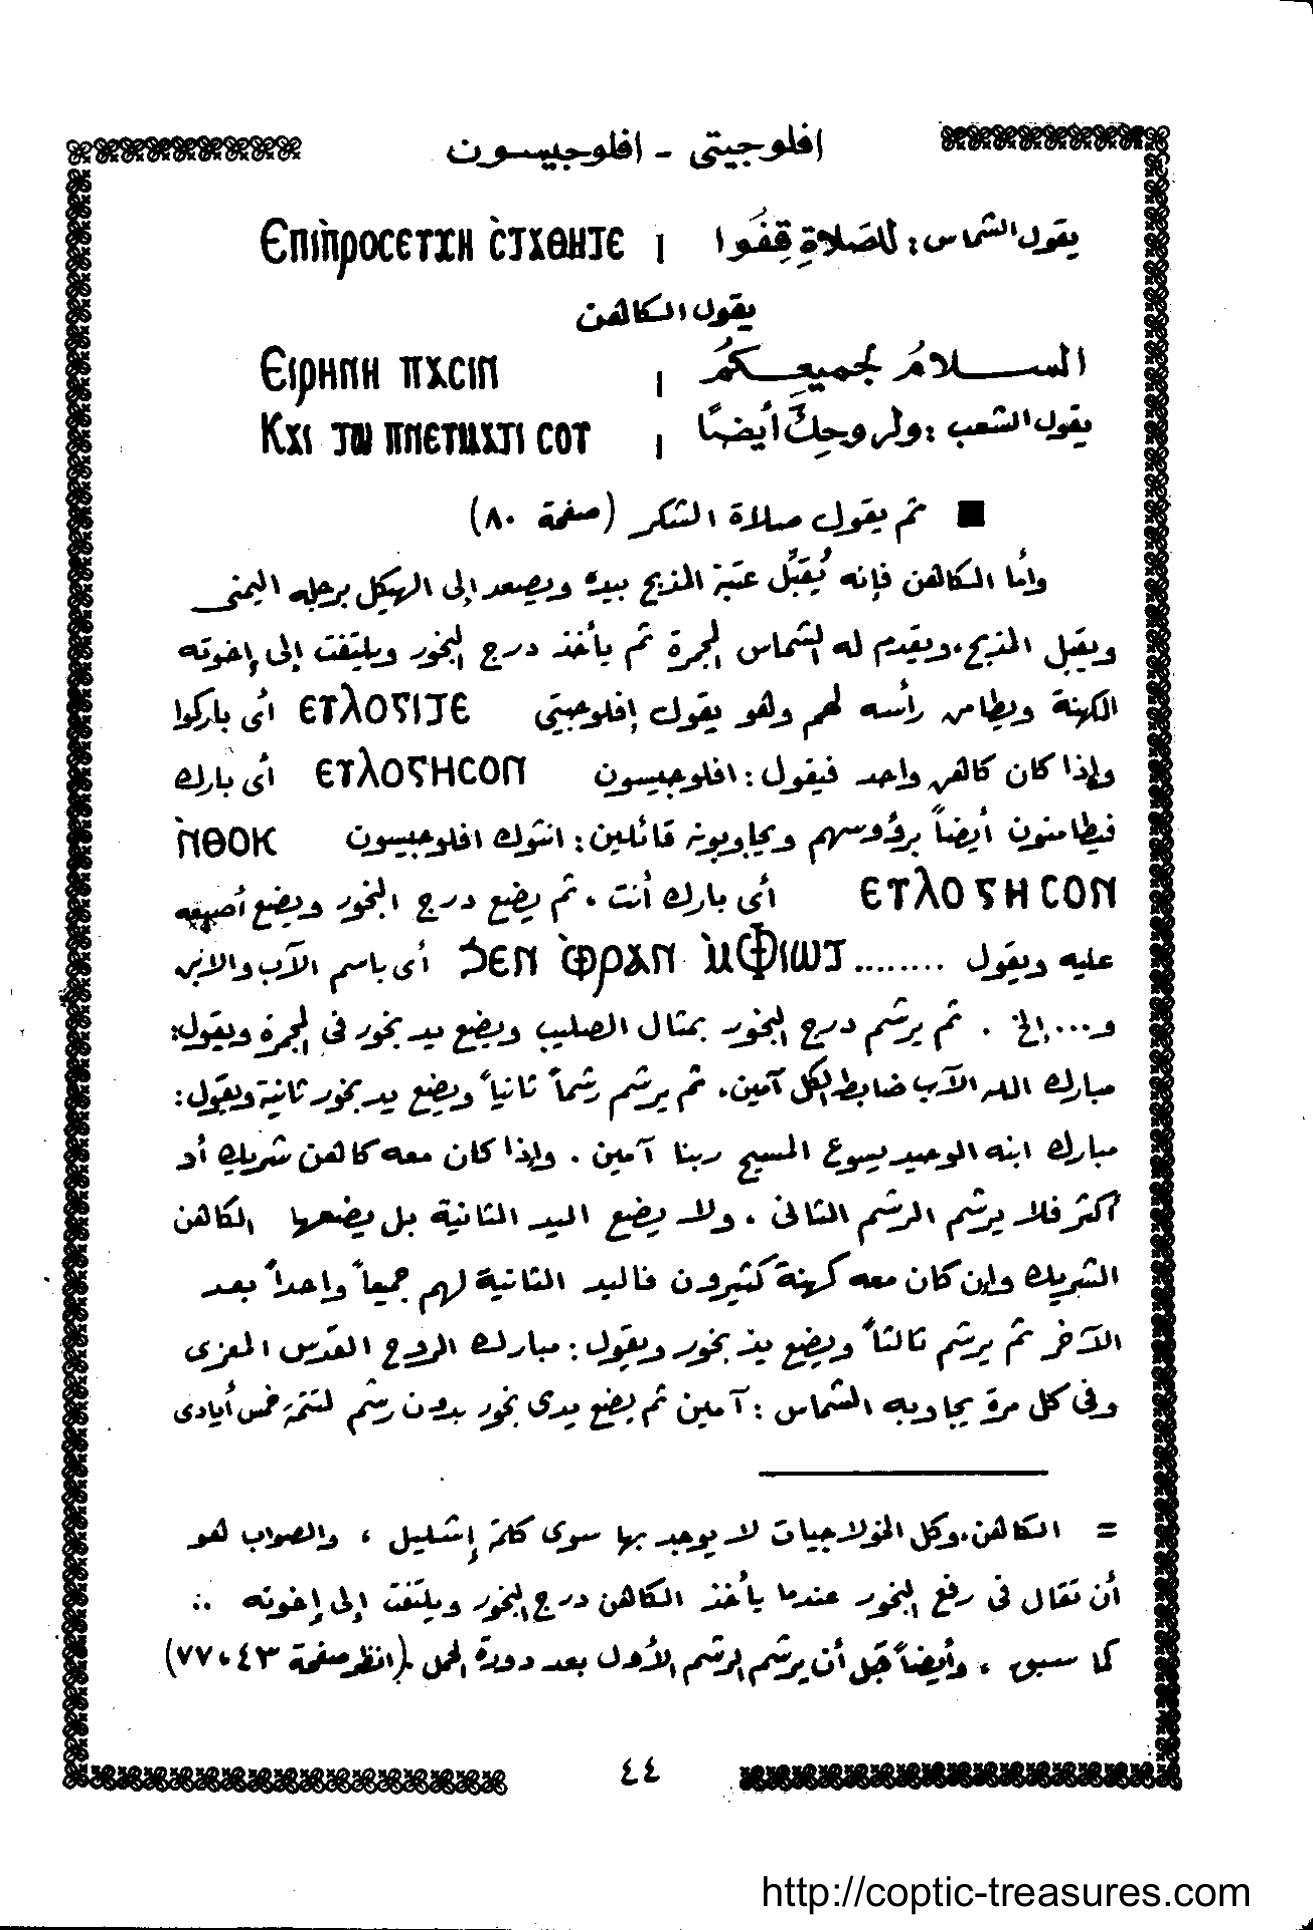 افلوجيتى - افلوجيسون
يقول الشماس: للصَلاةِ قِفُوا | Ⲉⲡⲓⲡ̀ⲣⲟⲥⲉⲩⲭⲏ ⲥ̀ⲧⲁⲑⲏⲧⲉ
يقول الكاهن
السـلامُ لجميعِـكمُ | Ⲉⲓⲣⲏⲛⲏ ⲡⲁⲥⲓⲛ
يقول الشعب: ولروحِكَ أيضًا | Ⲕⲁⲓ ⲧⲱ ⲡⲛⲉⲩⲙⲁⲧⲓ ⲥⲟⲩ
■ ثم يقول صلاة الشكر (صفحة ٨٠)
وأما الكاهن فإنه يُقَبِّل عتبة المذبح بيده ويصعد إلى الهيكل برجله اليمنى
ويقبل المذبح، ويقدم له الشماس المجمرة ثم يأخذ درج البخور ويلتفت إلى إخوته
الكهنة ويطامن رأسه لهم وهو يقول إفلوجيتى ⲉⲩⲗⲟⲅⲓⲧⲉ أى باركوا
وإذا كان كاهن واحد فيقول: افلوجيسون ⲉⲩⲗⲟⲅⲏⲥⲟⲛ أى بارك
فيطامنون أيضاً برؤوسهم ويجاوبونه قائلين: انثوك افلوجيسون ⲛ̀ⲑⲟⲕ
ⲉⲩⲗⲟⲅⲏⲥⲟⲛ أى بارك أنت. ثم يضع درج البخور ويضع أصبعه
عليه ويقول ........ ϧⲉⲛ ⲫ̀ⲣⲁⲛ ⲙ̀ⲫⲓⲱⲧ أى باسم الآب والابن
و... إلخ. ثم يرشم درج البخور بمثال الصليب ويضع يد بخور فى المجمرة ويقول:
مبارك الله الآب ضابط الكل آمين. ثم يرشم رشماً ثانياً ويضع يد بخور ثانية ويقول:
مبارك ابنه الوحيد يسوع المسيح ربنا آمين. وإذا كان معه كاهن شريك أو
أكثر فلا يرشم الرشم الثانى. ولا يضع اليد الثانية بل يضعها الكاهن
الشريك وإن كان معه كهنة كثيرون فاليد الثانية لهم جميعاً واحداً بعد
الآخر ثم يرشم ثالثاً ويضع يد بخور ويقول: مبارك الروح القدس المعزى
وفى كل مرة يجاوبه الشماس: آمين ثم يضع يدى بخور بدون رشم لتتمة خمس أيادى
= الكاهن. وكل الخولاجيات لا يوجد بها سوى كلمة إشليل، والصواب هو
أن تقال فى رفع البخور عندما يأخذ الكاهن درج البخور ويلتفت إلى إخوته ..
كما سبق، وأيضاً قبل أن يرشم الرشم الأول بعد دورة الحمل. (انظر صفحة ٤٣، ٧٧)
٤٤
http://coptic-treasures.com